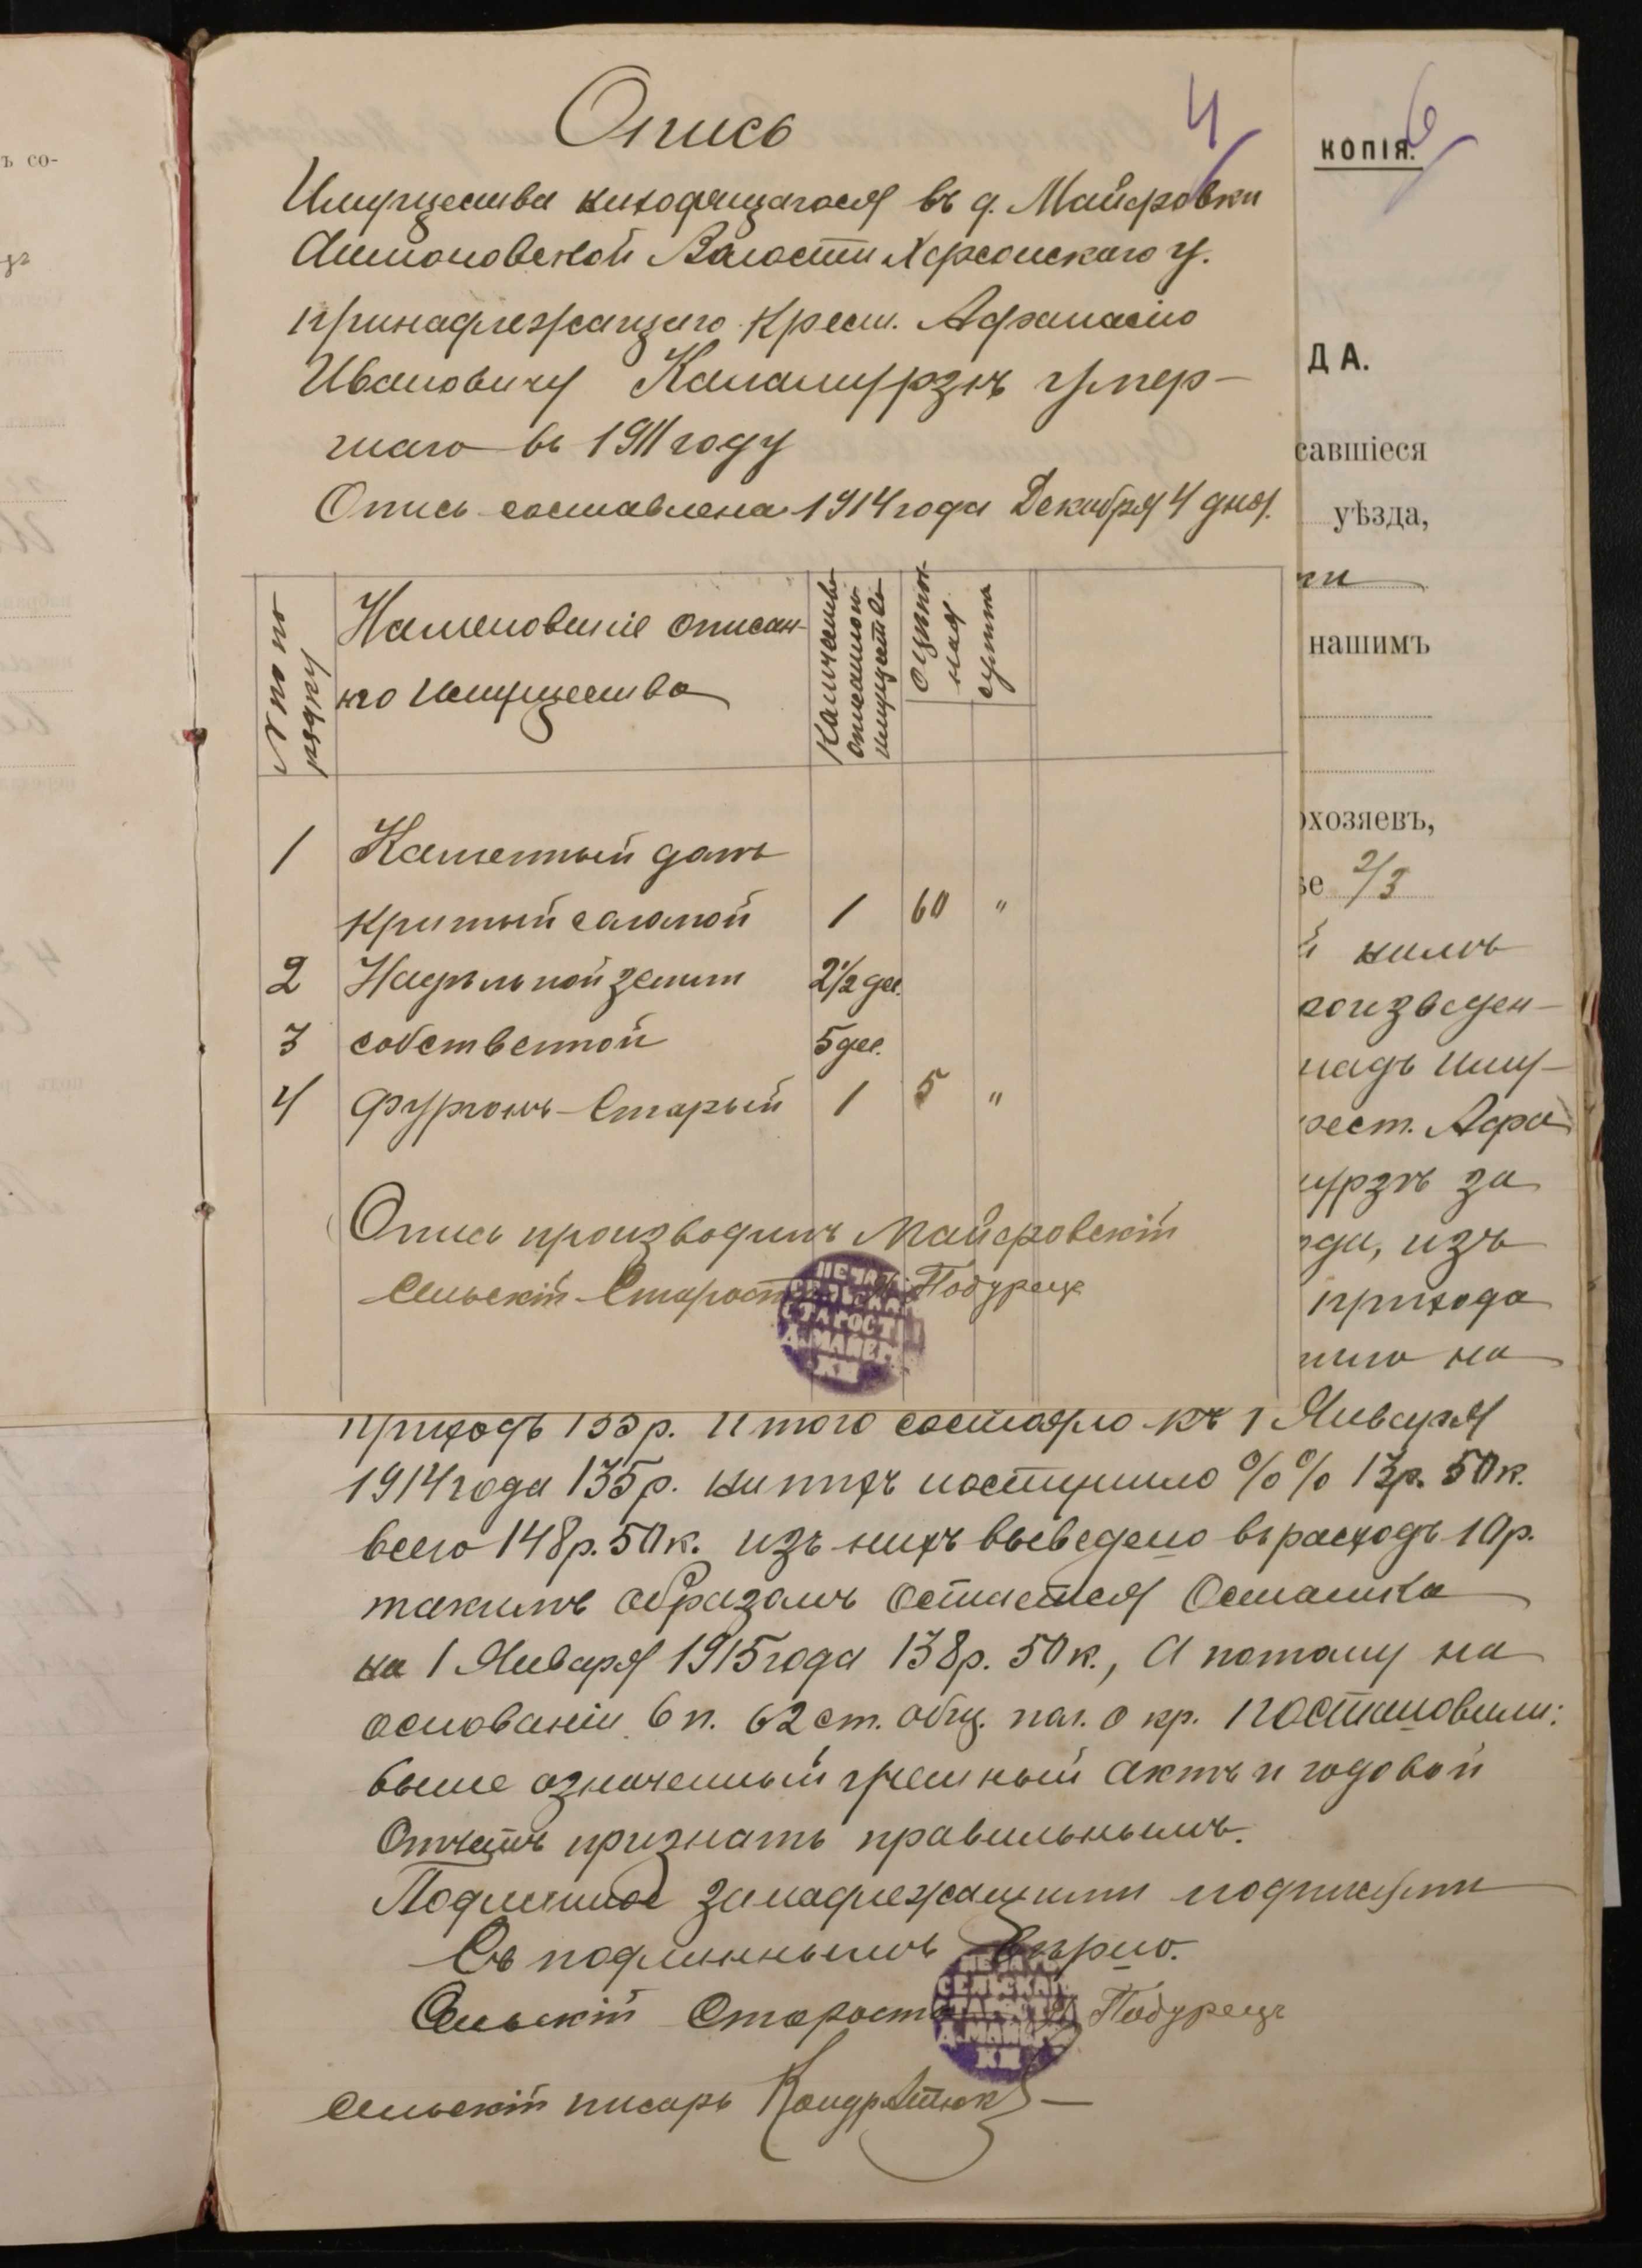 4
Опись
Имущества находящагося въ д. Майеровки
Антоновской Волости Херсонскаго у.
принадлежащаго Крест. Афанасію
Ивановичу Каламурзѣ умер-
шаго въ 1911 году
Опись составлена 1914 года Декабря 4 дня.
№ по порядку
Наменованіе описан-
го Имущества
Количество описаннаго имущества
оцѣноч-
ная
сумма
1 Каменный домъ
критый саломой 1 60 "
2 Надѣльной земли 2½ дес.
3 собственной 5 дес.
4 Фургонъ Старый 1 5 "
Опись производилъ Майеровскій
Сельскій Староста Подурецъ
ПЕЧАТЬ
СЕЛЬСКАГ
СТАРОСТЫ
Д. МАЙЕР
КИ
КОПІЯ.
6
ДА.
савшіеся
уѣзда,
ки
нашимъ
охозяевъ,
ве 2/3
й намъ
роизведен-
надъ иму-
рест. Афа
урзѣ за
ода, изъ
прихода
на
приходъ 135 р. Итого состояло къ 1 Января
1914 года 135 р. на нихъ поступило %% 13 р. 50 к.
всего 148 р. 50 к. изъ нихъ выведено въ расходъ 10 р.
такимъ образомъ остается Остатка
на 1 Января 1915 года 138 р. 50 к., А потому на
основаніи 6 п. 62 ст. общ. пол. о кр. постановили:
выше означенный учетный актъ и годовой
Отчетъ признать правильнымъ.
Подлинное за надлежащими подписями
Съ подлиннымъ вѣрно.
Сельскій Староста Подурецъ
СЕЛЬСКАГ
Д. МАЙЕР
КИ
Сельскій писарь Кондратюк
ъ со-